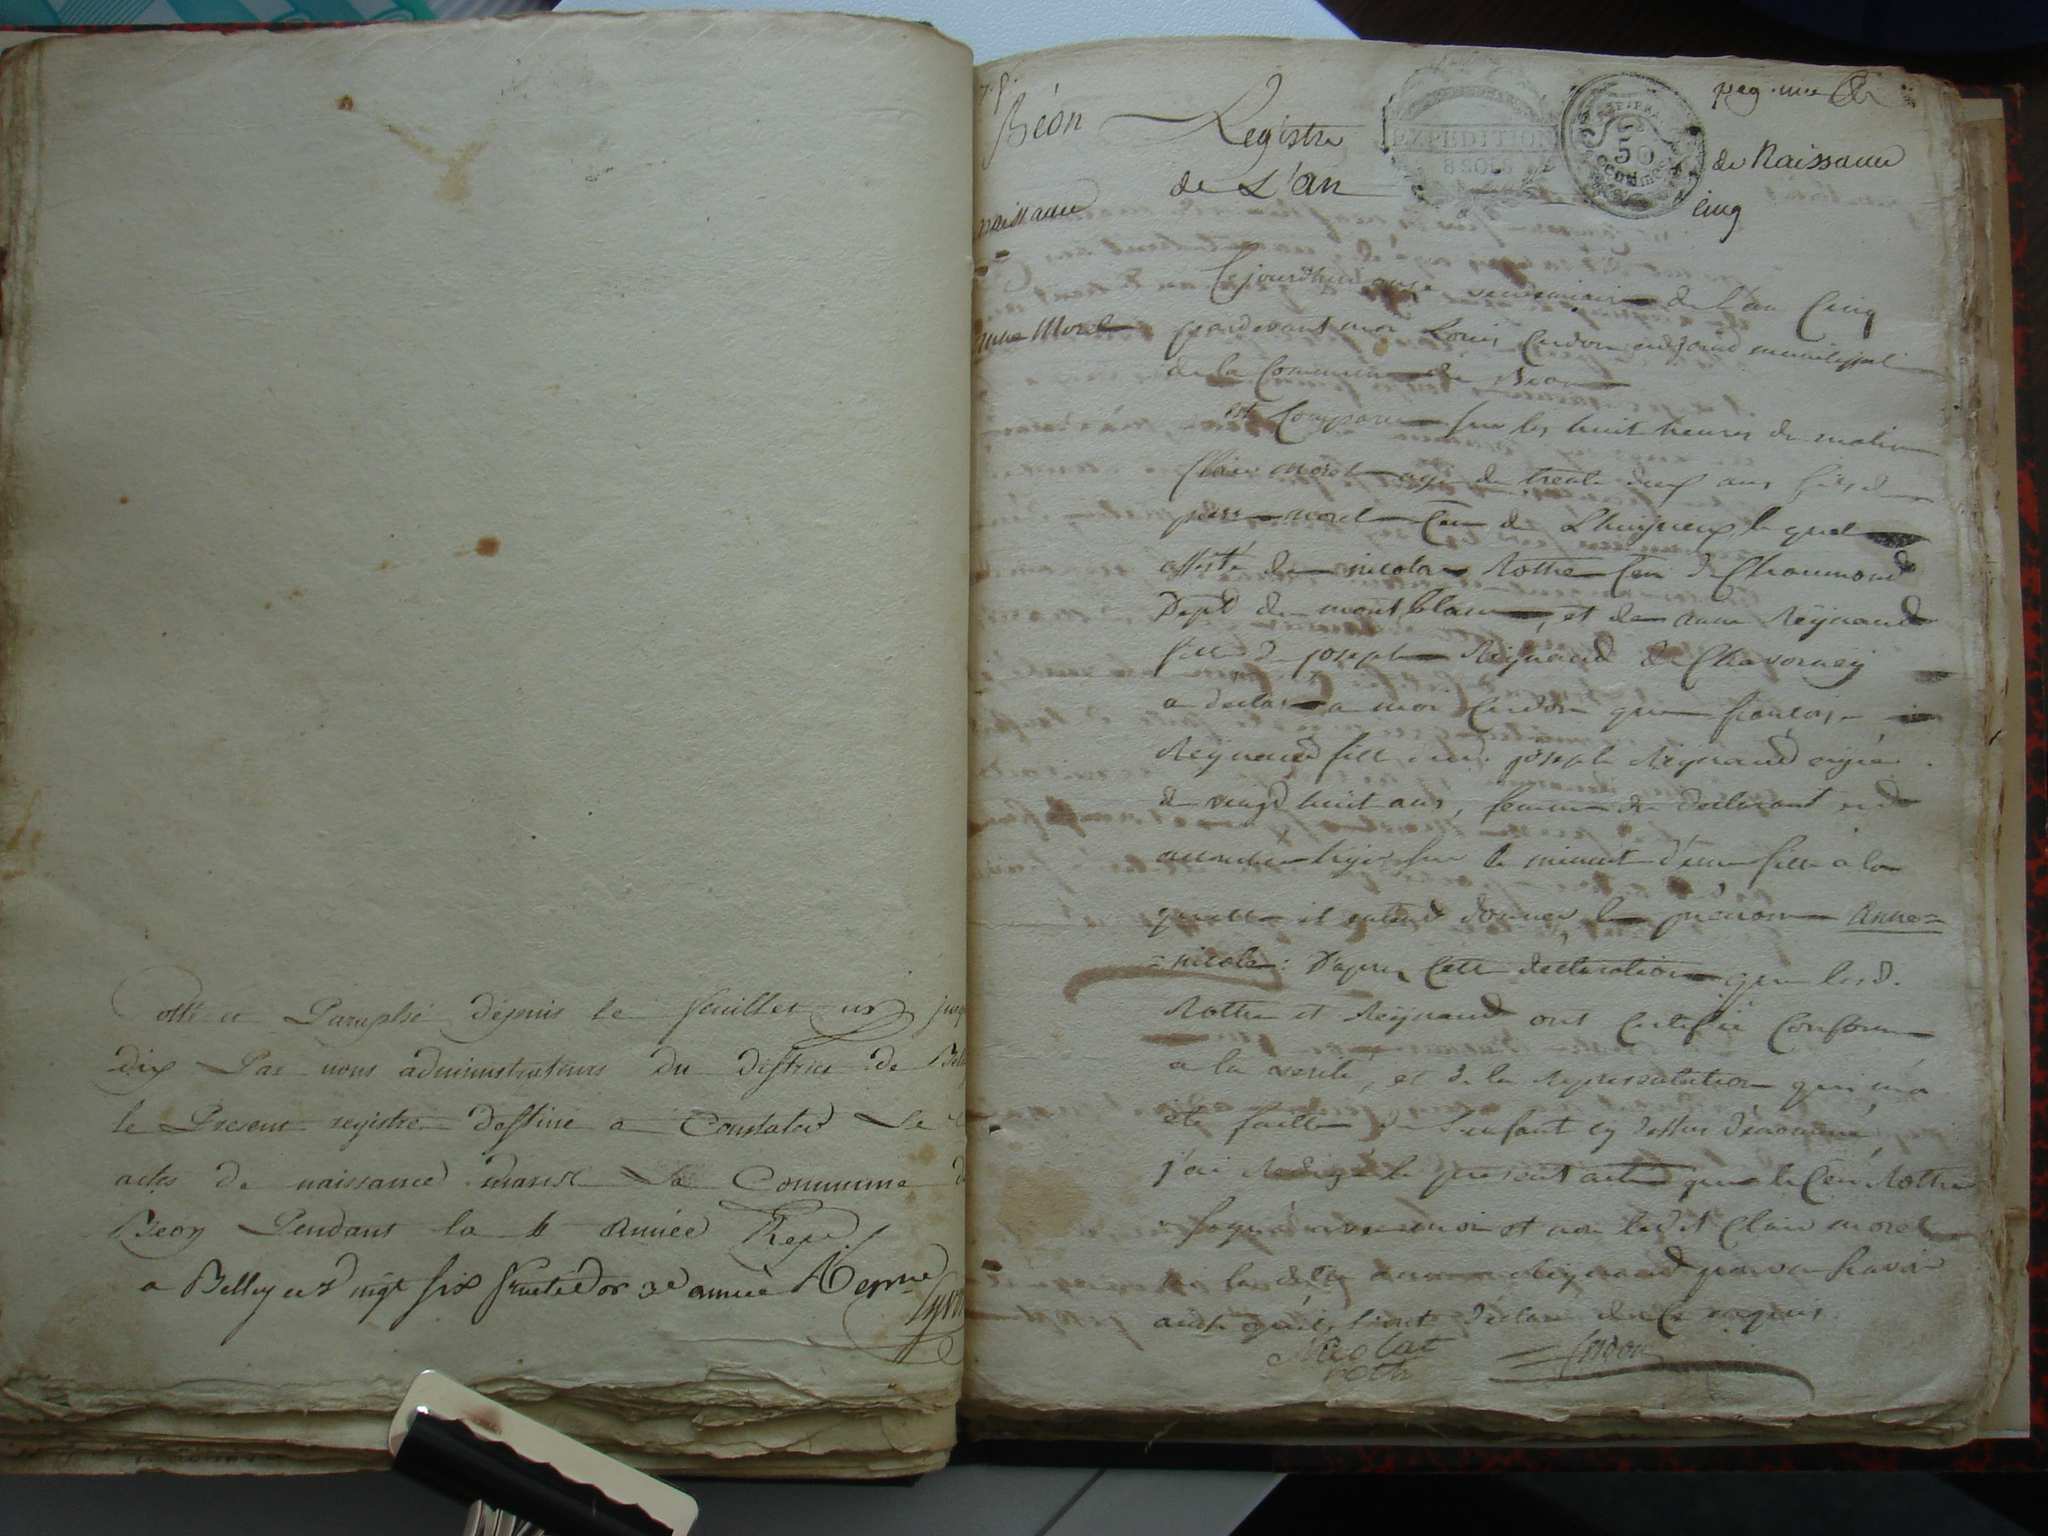 Cotté et Paraphé depuis le feuillet un jusq
dix Par nous administrateurs du district de Bell
le Present registre destiné a Constater Le
actes de naissance dans La Commune d
Beon Pendant la 4 année Repe
a Belley ce vingt six fructidor 3e année
Béon
Registre
de L'an
EXPEDITION
8 SOLS
50
centimes
pag. une
de Naissance
cinq
naissance
anne Morel
Cejourdhui onze vendemiaire de l'an Cinq
pardevant moi Louis Cerdon adjoint municippal
de la Commune de Beon
est Comparu sur les huit heures du matin
Clair morel agé de trente deux ans fils de
morel Cen de Lhuyrieux le quel
assisté de nicolas Rothe Cen de Chaumond
Dept du mont blanc, et de anne Reynaud
fille de joseph Reynaud de Chavorney
a declaré a moi Cerdon que françoise
Reynaud fille dud. joseph Reynaud agée
de vingt huit ans, femme du declarant et de
accouchée hyer sur le minuit d'une fille a la
quelle il entend donner le prénom Anne=
=nicole: D'apres Cette declaration que lesd.
Rothe et Reynaud ont Certifié Conforme
a la verité, et de la représentation qui m'a
été faitte de l'enfant cy dessus dénommé
j'ai redigé le présent acte que le Cen Rothe
a signé avec moi et non ledit Clair morel
ni la ditte anne Reynaud pour ne savoir
ainsi qu'ils l'ont déclaré de Ce requis.
Nicolat
roth
Cerdon